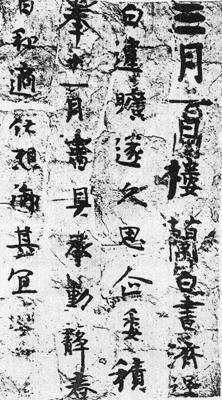 三月一日樓蘭白書濟逞
白違曠遂久思企委積
奉十一月書具承動靜春
日和適伏想 其宜